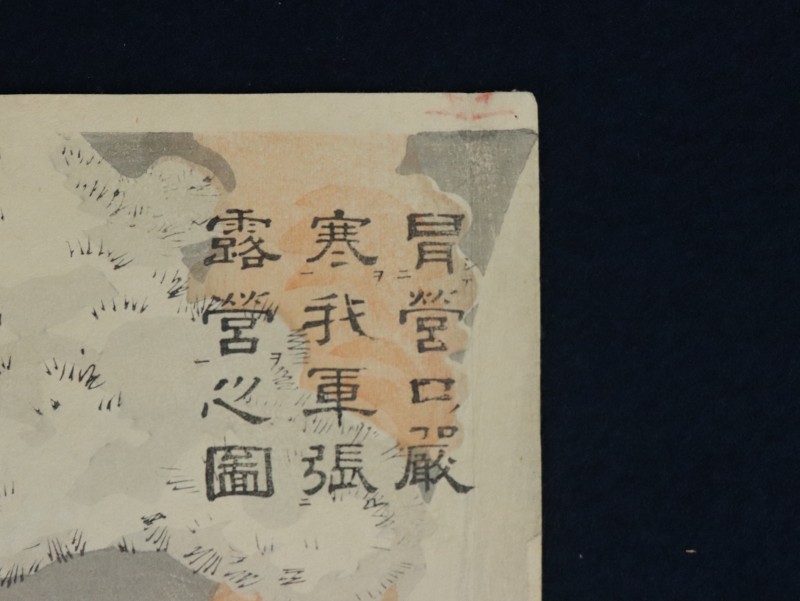 冒營口嚴
寒我軍張
露營之圖